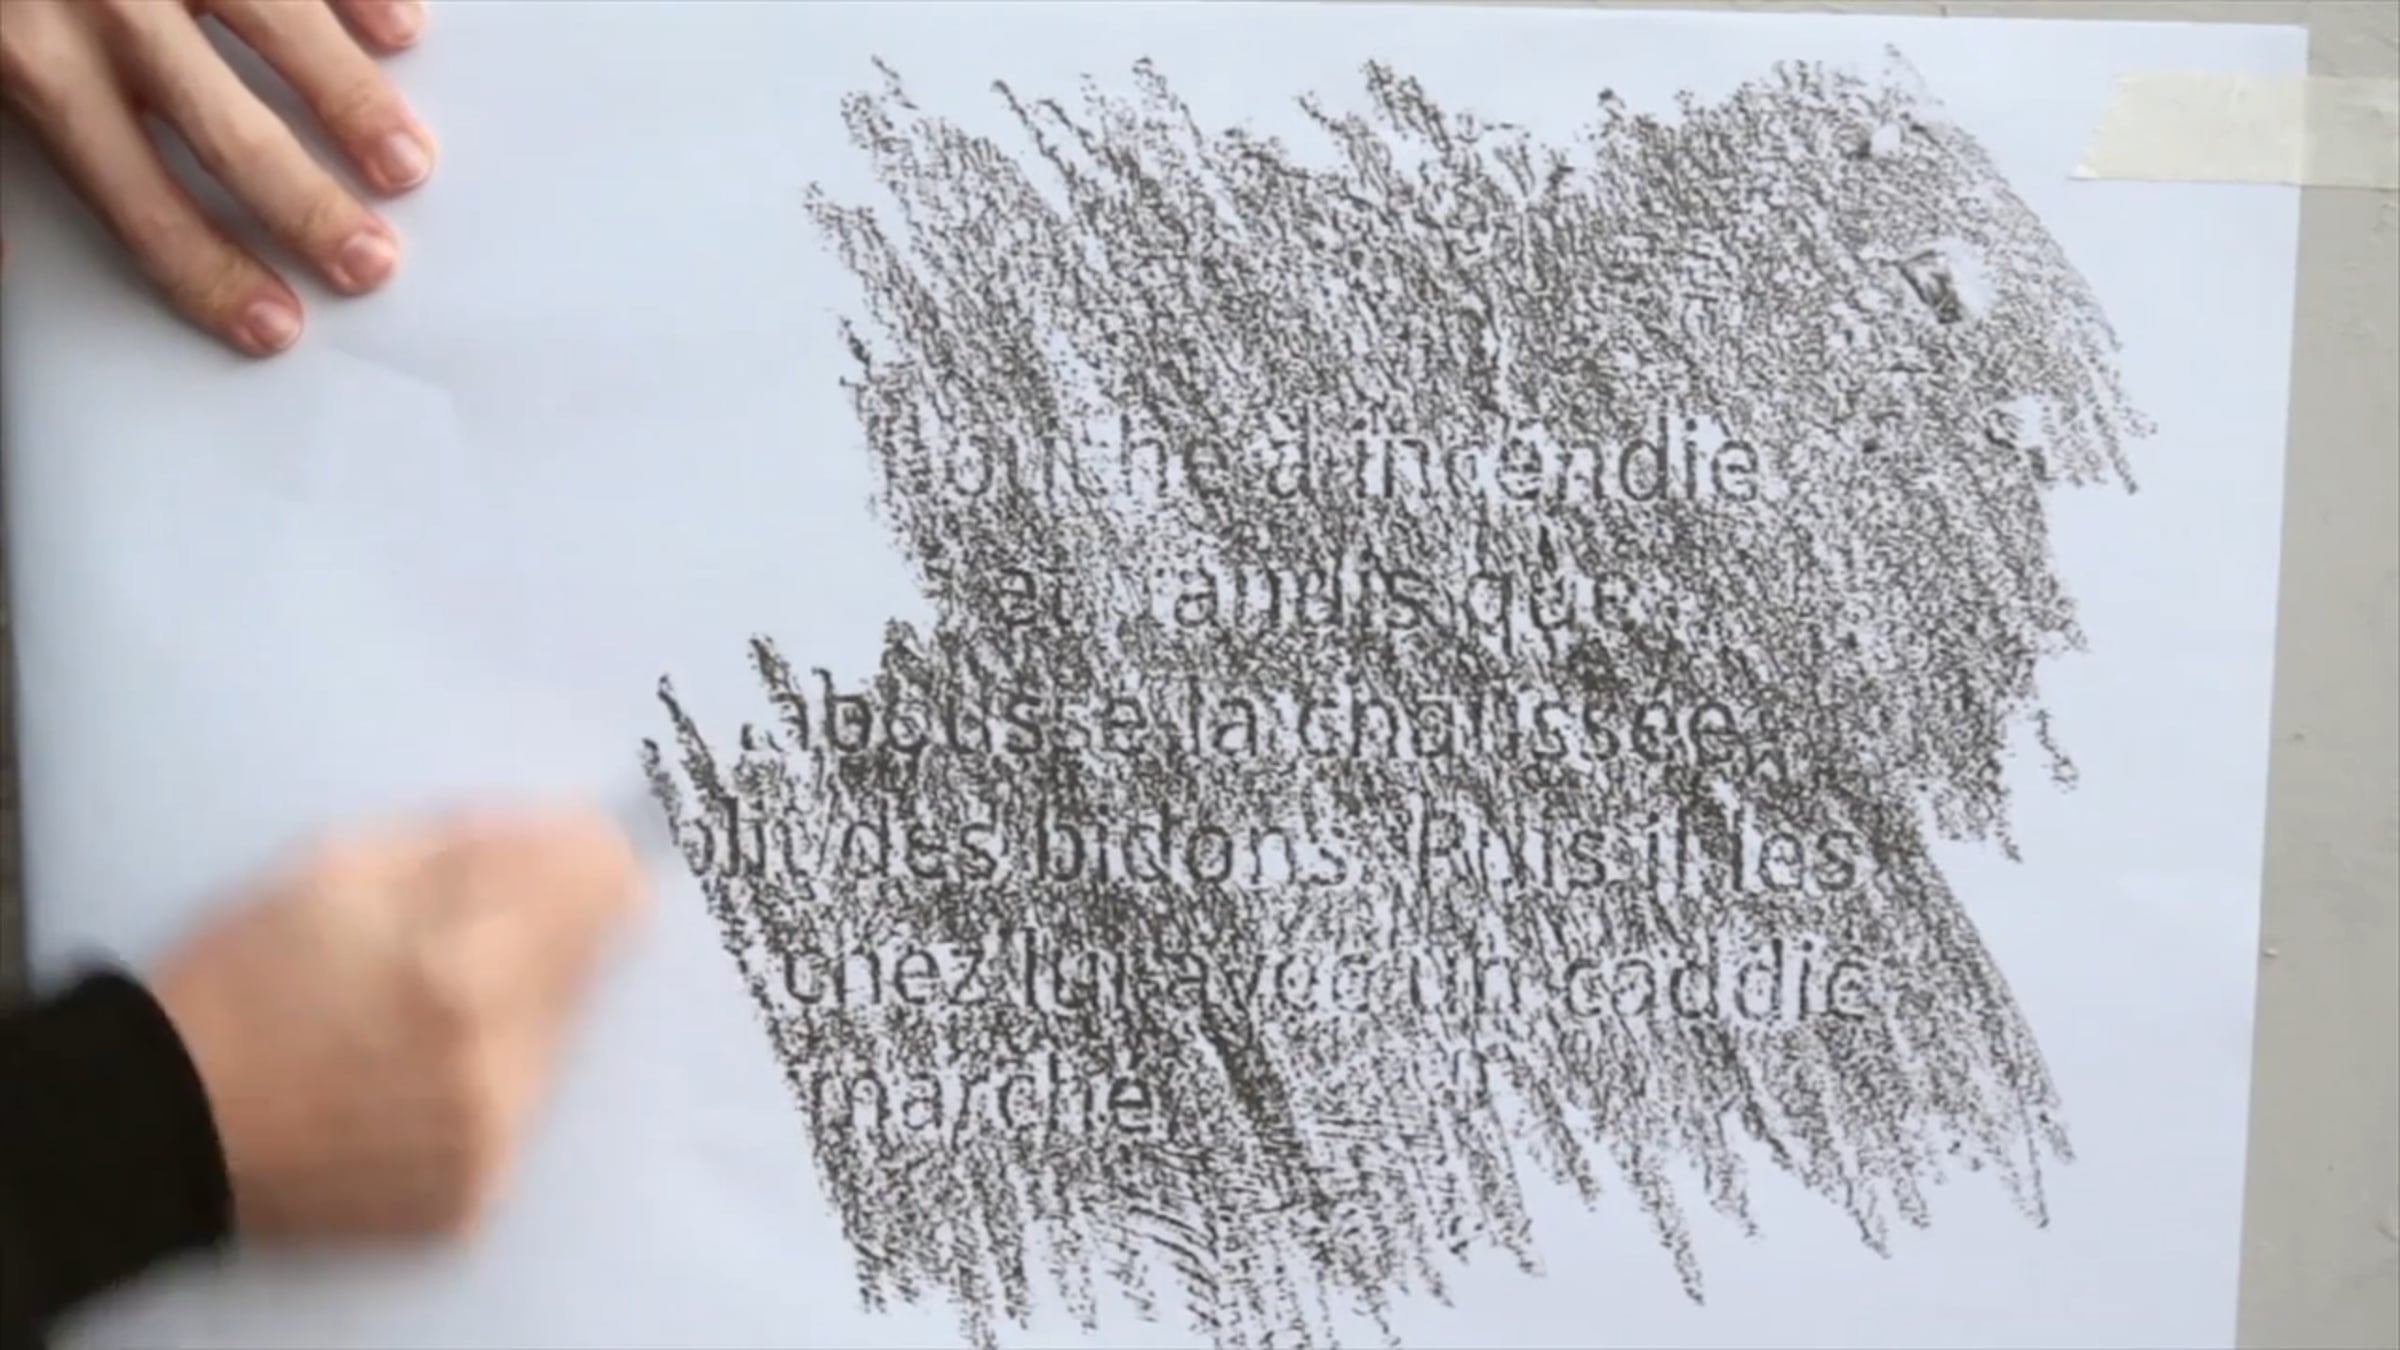 bouche d'incendie
et tandis que
abousse la chaussée,
plit des bidons. Puis il les
chez lui avec un caddie
marché.